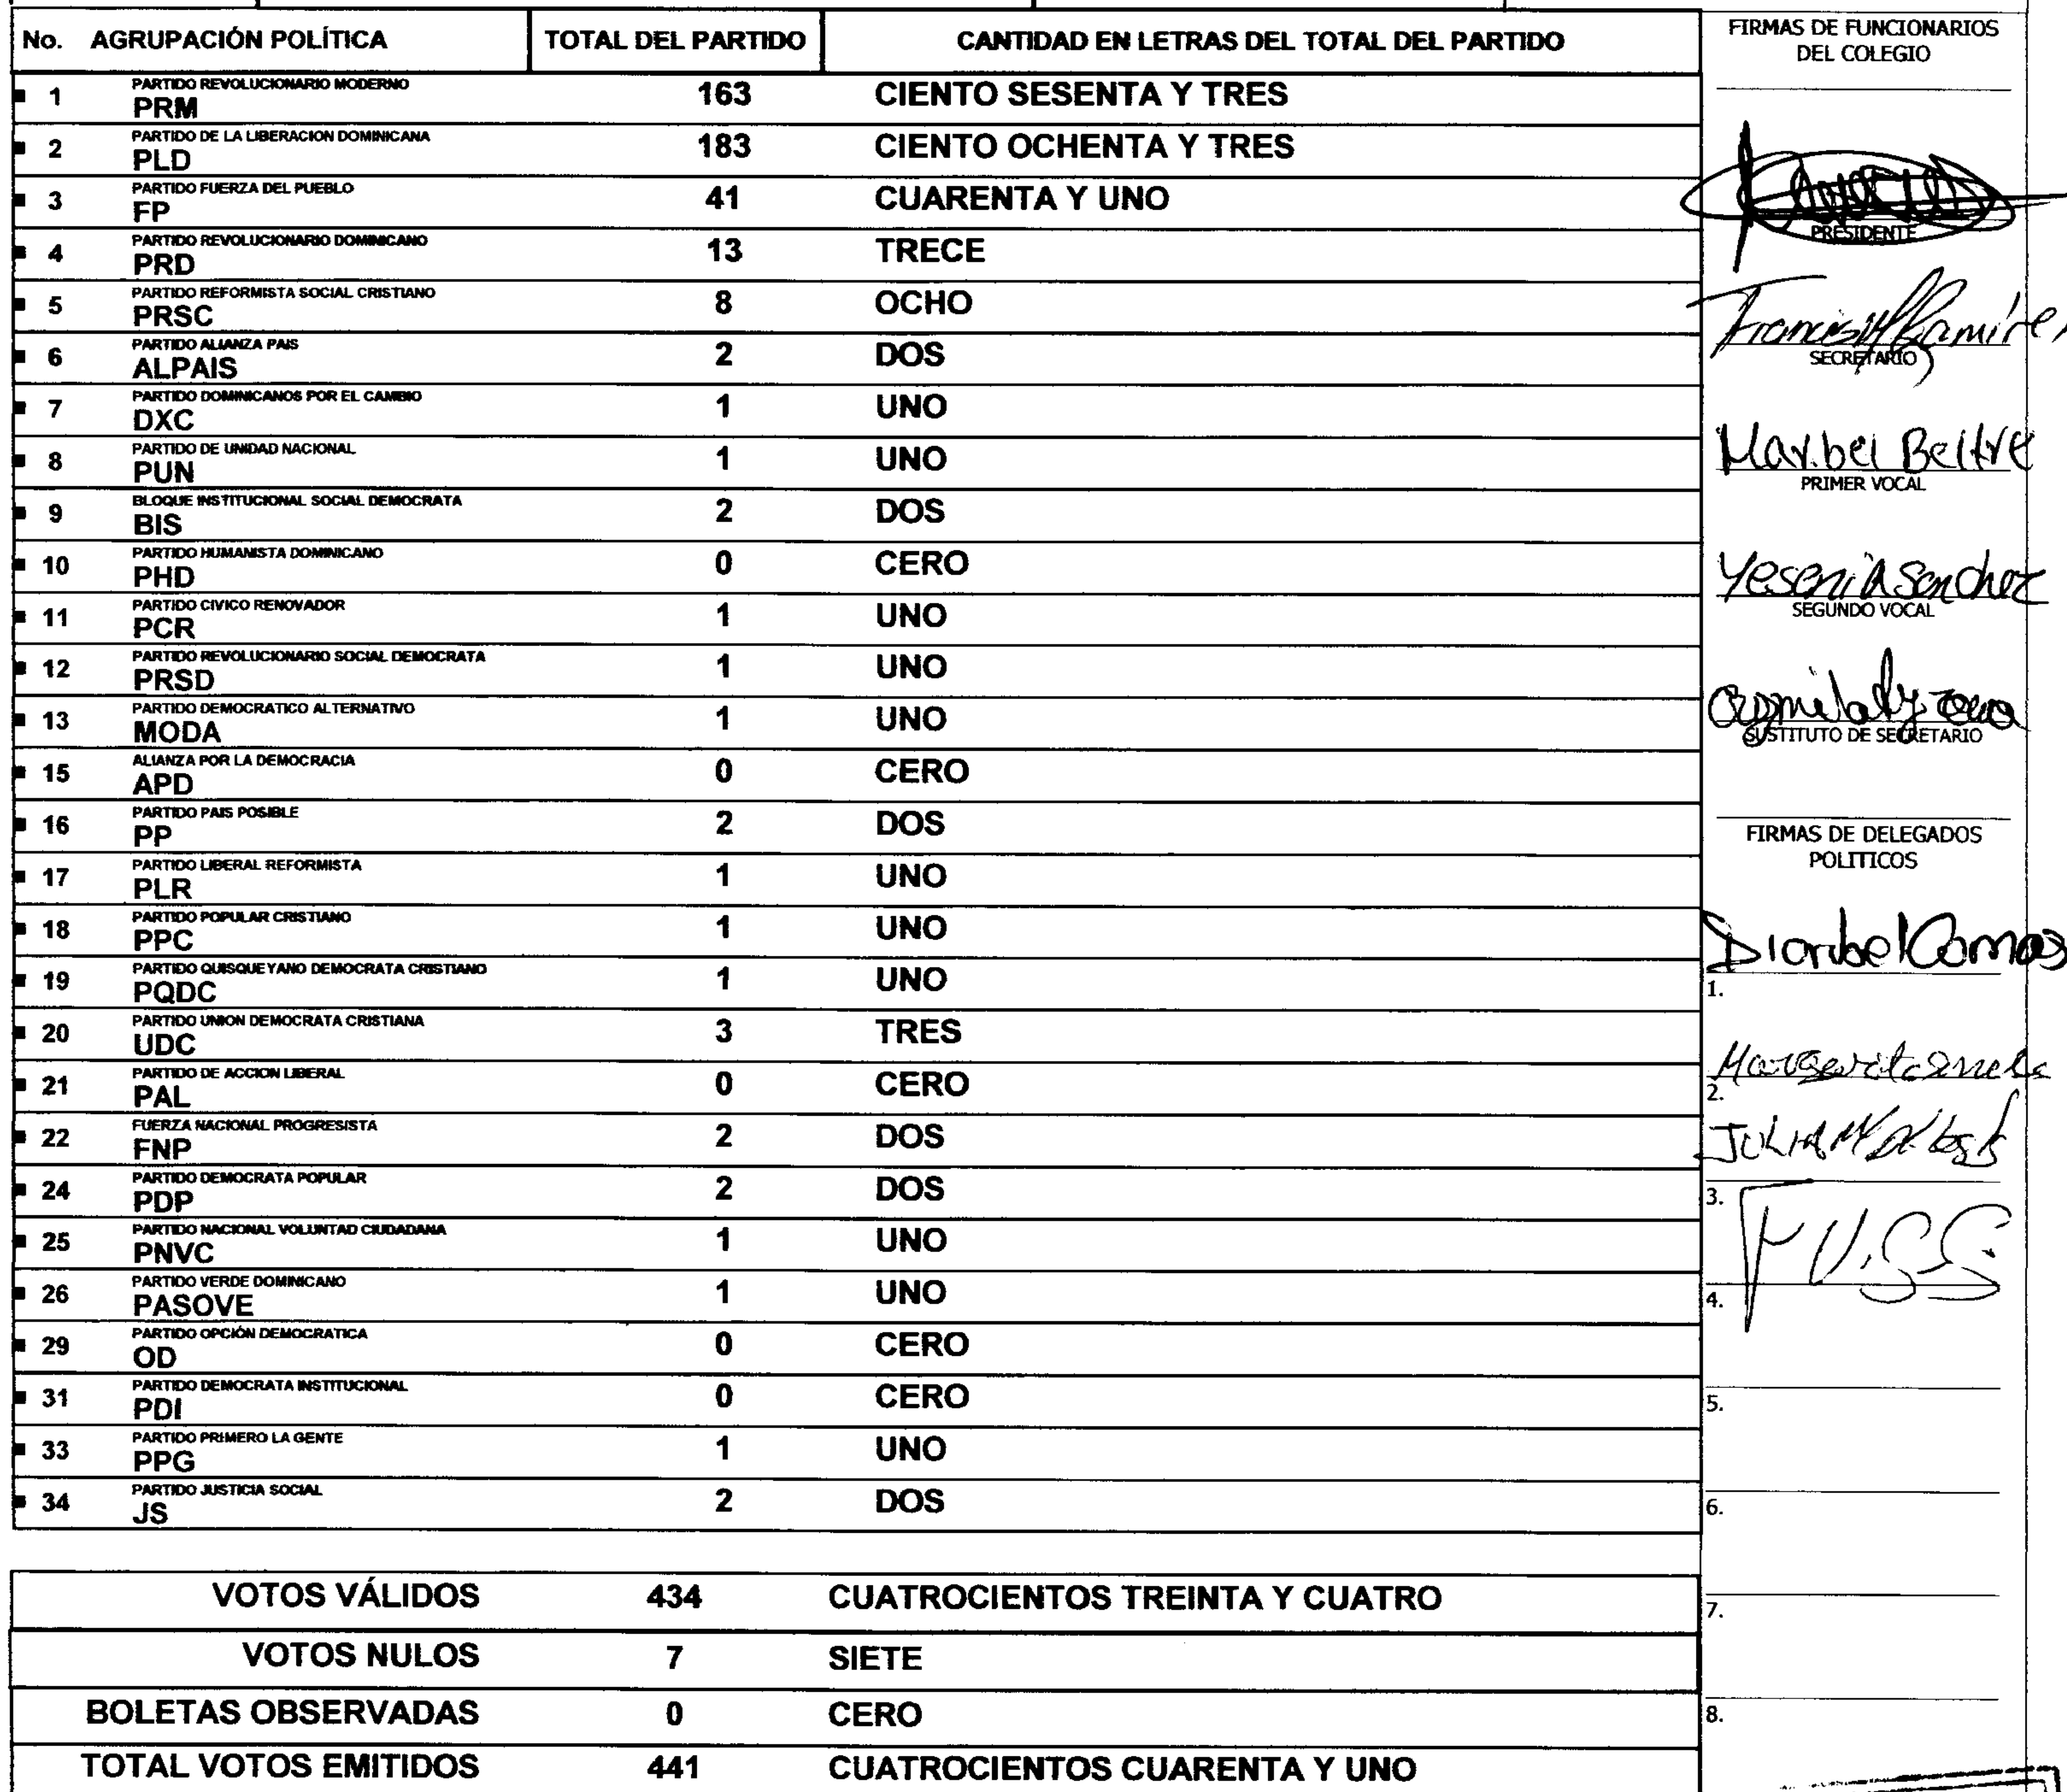 No. AGRUPACIÓN POLÍTICA TOTAL DEL PARTIDO CANTIDAD EN LETRAS DEL TOTAL DEL PARTIDO
PARTIDO REVOLUCIONARIO MODERNO
1 PRM 163 CIENTO SESENTA Y TRES
PARTIDO DE LA LIBERACION DOMINICANA
2 PLD 183 CIENTO OCHENTA Y TRES
PARTIDO FUERZA DEL PUEBLO
3 FP 41 CUARENTA Y UNO
PARTIDO REVOLUCIONARIO DOMINICANO
4 PRD 13 TRECE
PARTIDO REFORMISTA SOCIAL CRISTIANO
5 PRSC 8 OCHO
PARTIDO ALIANZA PAIS
6 ALPAIS 2 DOS
PARTIDO DOMINICANOS POR EL CAMBIO
7 DXC 1 UNO
PARTIDO DE UNIDAD NACIONAL
8 PUN 1 UNO
BLOQUE INSTITUCIONAL SOCIAL DEMOCRATA
9 BIS 2 DOS
PARTIDO HUMANISTA DOMINICANO
10 PHD 0 CERO
PARTIDO CIVICO RENOVADOR
11 PCR 1 UNO
PARTIDO REVOLUCIONARIO SOCIAL DEMOCRATA
12 PRSD 1 UNO
PARTIDO DEMOCRATICO ALTERNATIVO
13 MODA 1 UNO
ALIANZA POR LA DEMOCRACIA
15 APD 0 CERO
PARTIDO PAIS POSIBLE
16 PP 2 DOS
PARTIDO LIBERAL REFORMISTA
17 PLR 1 UNO
PARTIDO POPULAR CRISTIANO
18 PPC 1 UNO
PARTIDO QUISQUEYANO DEMOCRATA CRISTIANO
19 PQDC 1 UNO
PARTIDO UNION DEMOCRATA CRISTIANA
20 UDC 3 TRES
PARTIDO DE ACCION LIBERAL
21 PAL 0 CERO
FUERZA NACIONAL PROGRESISTA
22 FNP 2 DOS
PARTIDO DEMOCRATA POPULAR
24 PDP 2 DOS
PARTIDO NACIONAL VOLUNTAD CIUDADANA
25 PNVC 1 UNO
PARTIDO VERDE DOMINICANO
26 PASOVE 1 UNO
PARTIDO OPCIÓN DEMOCRATICA
29 OD 0 CERO
PARTIDO DEMOCRATA INSTITUCIONAL
31 PDI 0 CERO
PARTIDO PRIMERO LA GENTE
33 PPG 1 UNO
PARTIDO JUSTICIA SOCIAL
34 JS 2 DOS
VOTOS VÁLIDOS 434 CUATROCIENTOS TREINTA Y CUATRO
VOTOS NULOS 7 SIETE
BOLETAS OBSERVADAS 0 CERO
TOTAL VOTOS EMITIDOS 441 CUATROCIENTOS CUARENTA Y UNO
FIRMAS DE FUNCIONARIOS
DEL COLEGIO
PRESIDENTE
SECRETARIO
Maribel Beltre
PRIMER VOCAL
Yesenia Sanchez
SEGUNDO VOCAL
SUSTITUTO DE SECRETARIO
FIRMAS DE DELEGADOS
POLITICOS
1.
2.
3.
4.
5.
6.
7.
8.